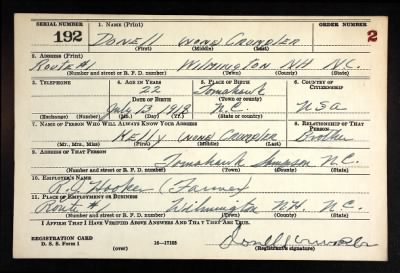 SERIAL NUMBER 1. NAME (Print) ORDER NUMBER
192 DONELL (NONE) CRUMPLER 2
(First) (Middle) (Last)
2. ADDRESS (Print)
ROUTE #1 WILMINGTON NH N.C.
(Number and street or R. F. D. number) (Town) (County) (State)
3. TELEPHONE 4. AGE IN YEARS 5. PLACE OF BIRTH 6. COUNTRY OF CITIZENSHIP
22 Tomahawk
DATE OF BIRTH (Town or county)
July 13 1919 N.C. USA
(Exchange) (Number) (Mo.) (Day) (Yr.) (State or country)
7. NAME OF PERSON WHO WILL ALWAYS KNOW YOUR ADDRESS 8. RELATIONSHIP OF THAT PERSON
(NONE) CRUMPLER Brother
(Mr., Mrs., Miss) (First) (Middle) (Last)
9. ADDRESS OF THAT PERSON
Tomahawk Sampson N.C.
(Number and street or R. F. D. number) (Town) (County) (State)
10. EMPLOYER'S NAME
Hooker (Farmer)
11. PLACE OF EMPLOYMENT OR BUSINESS
Route #1 Wilmington N.H. N.C.
(Number and street or R. F. D. number) (Town) (County) (State)
I AFFIRM THAT I HAVE VERIFIED ABOVE ANSWERS AND THAT THEY ARE TRUE.
REGISTRATION CARD
D. S. S. Form 1 (over) 16—17105 Donell Crumpler
(Registrant's signature)